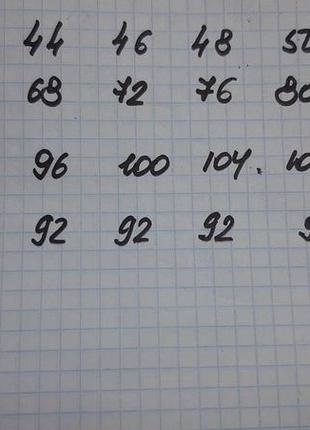 44 46 48
68 72 76
96 100 104.
92 92 92